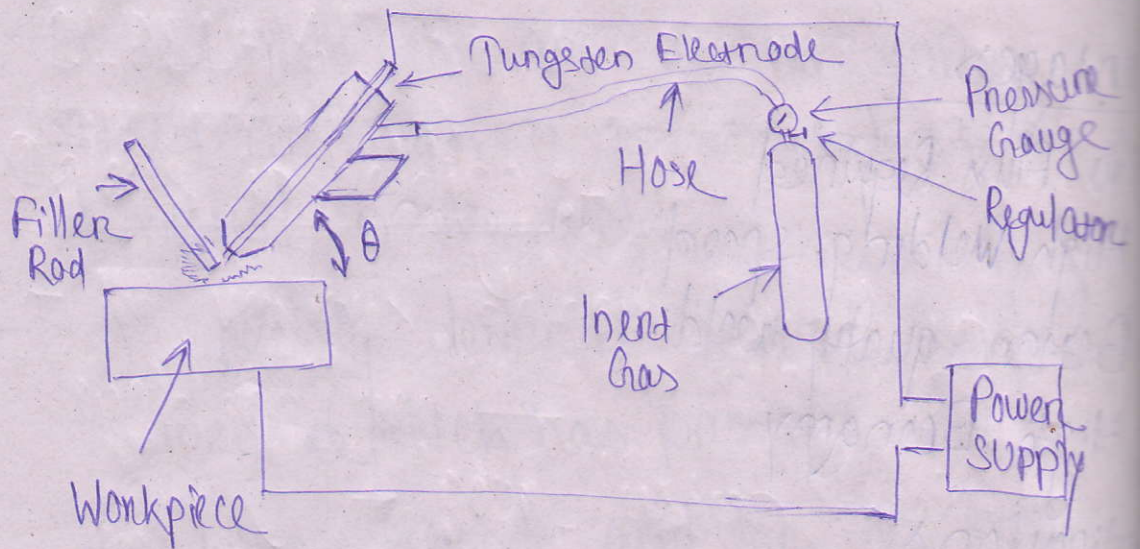 Tungsten Electrode
Pressure
Gauge
Hose
Regulator
Filler
Rod
θ
Inert
Gas
Power
Supply
Workpiece